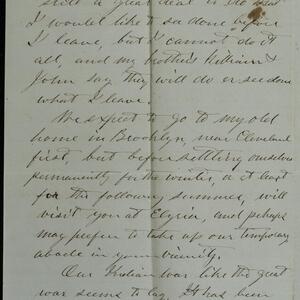 still a great deal to do that
I would like to see done before
I leave, but I cannot do it
all, and my brothers William &
John say they will do or see done
what I leave.
We expect to go to my old
home in Brooklyn, near Cleveland
first, but before settling ourselves
permanently for the winter, or at least
for the following summer, will
visit you at Elyria, and perhaps
may prefer to take up our temporary
abode in your vicinity.
Our Indian war like the great
war seems to lag. It has been